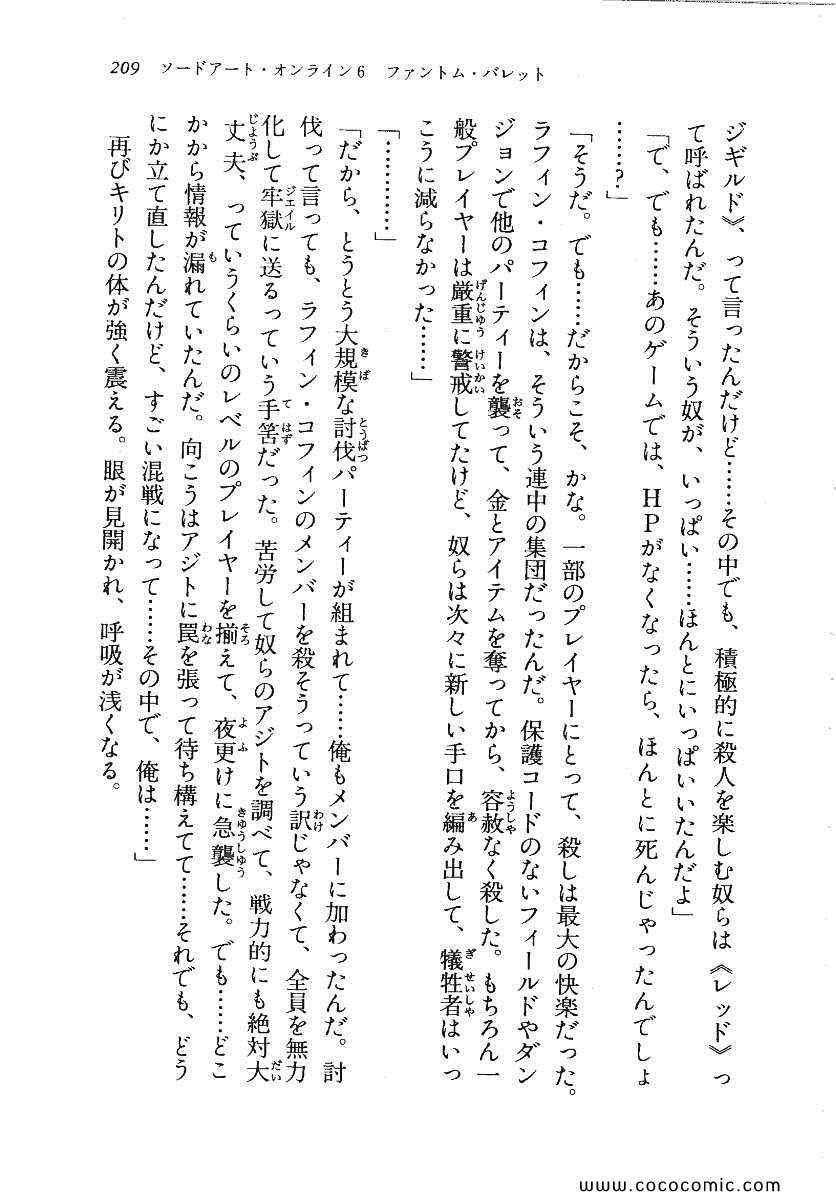 209 ソードアート・オンライン6 ファントム・バレット
ジギルド》、って言ったんだけど……その中でも、積極的に殺人を楽しむ奴らは《レッド》っ
て呼ばれたんだ。そういう奴が、いっぱい……ほんとにいっぱいいたんだよ」
「で、でも……あのゲームでは、HPがなくなったら、ほんとに死んじゃったんでしょ
……?」
「そうだ。でも……だからこそ、かな。一部のプレイヤーにとって、殺しは最大の快楽だった。
ラフィン・コフィンは、そういう連中の集団だったんだ。保護コードのないフィールドやダン
ジョンで他のパーティーを襲って、金とアイテムを奪ってから、容赦なく殺した。もちろん一
般プレイヤーは厳重に警戒してたけど、奴らは次々に新しい手口を編み出して、犠牲者はいっ
こうに減らなかった……」
「…………」
「だから、とうとう大規模な討伐パーティーが組まれて……俺もメンバーに加わったんだ。討
伐って言っても、ラフィン・コフィンのメンバーを殺そうっていう訳じゃなくて、全員を無力
化して牢獄に送るっていう手筈だった。苦労して奴らのアジトを調べて、戦力的にも絶対大
丈夫、っていうくらいのレベルのプレイヤーを揃えて、夜更けに急襲した。でも……どこ
かから情報が漏れていたんだ。向こうはアジトに罠を張って待ち構えてて……それでも、どう
にか立て直したんだけど、すごい混戦になって……その中で、俺は……」
再びキリトの体が強く震える。眼が見開かれ、呼吸が浅くなる。
www.cococomic.com